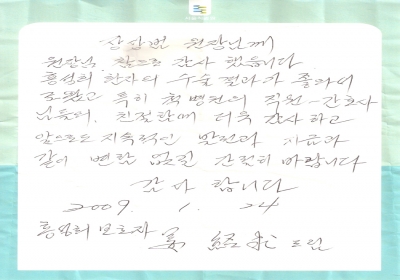 원장님께
원장님, 참으로 감사 했읍니다
홍성희 환자의 수술 결과가 졸라서
특히 척병원의 직원 - 간호사
님들의, 친절함에 더욱 감사 하고
앞으로도 지속적인 발전과 지금과
같이 변함 없길 간절히 바랍니다
감사 합니다
2009. 1. 24
홍성희 보호자 드림